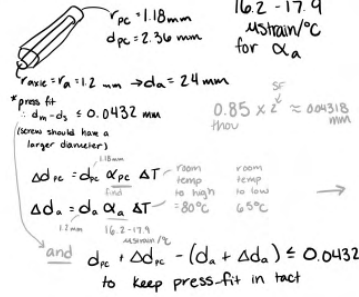 r pc = 1.18 mm
d pc = 2.36 mm
16.2 - 17.9
μstrain/°C
for αa
r axle = ra = 1.2 mm → da = 24 mm
*press fit
∴ dm - ds ≤ 0.0432 mm
(screw should have a
larger diameter)
SF
0.85 x 2 ≈ 0.04318
thou mm
1.18mm
Δd pc = d pc α pc ΔT
find
room
temp
to high
= 80°C
room
temp
to low
65°C
→
Δda = da αa ΔT
1.2mm
16.2-17.9
μstrain/°C
and d pc + Δd pc - (da + Δda) ≤ 0.0432
to keep press-fit in tact